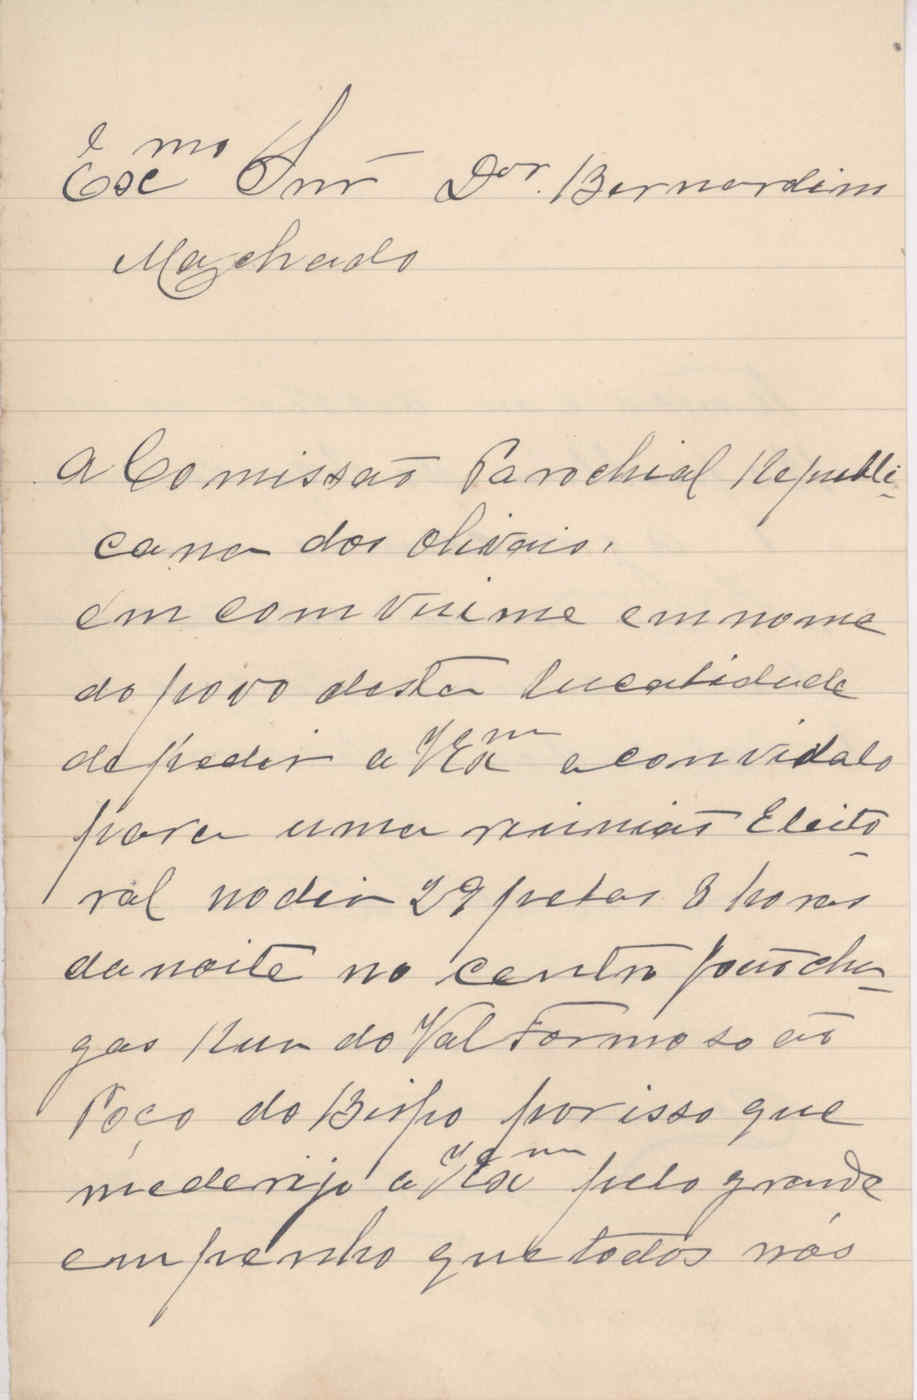 Exc^mo Snr Dor. Bernardim
Machado
A Comissão Parochial Republi-
cana dos Olivais,
em comvinime em nome
do povo desta lucalidade
de pedir a V Ex^m e convidalo
para uma riunião Eleito-
ral no dia 29 pelas 8 horas
da noite no centro João cha-
gas Rua do Val Formoso ão
Poço do Bispo por isso que
me derijo a V Ex^m pelo grande
empenho que todos nós